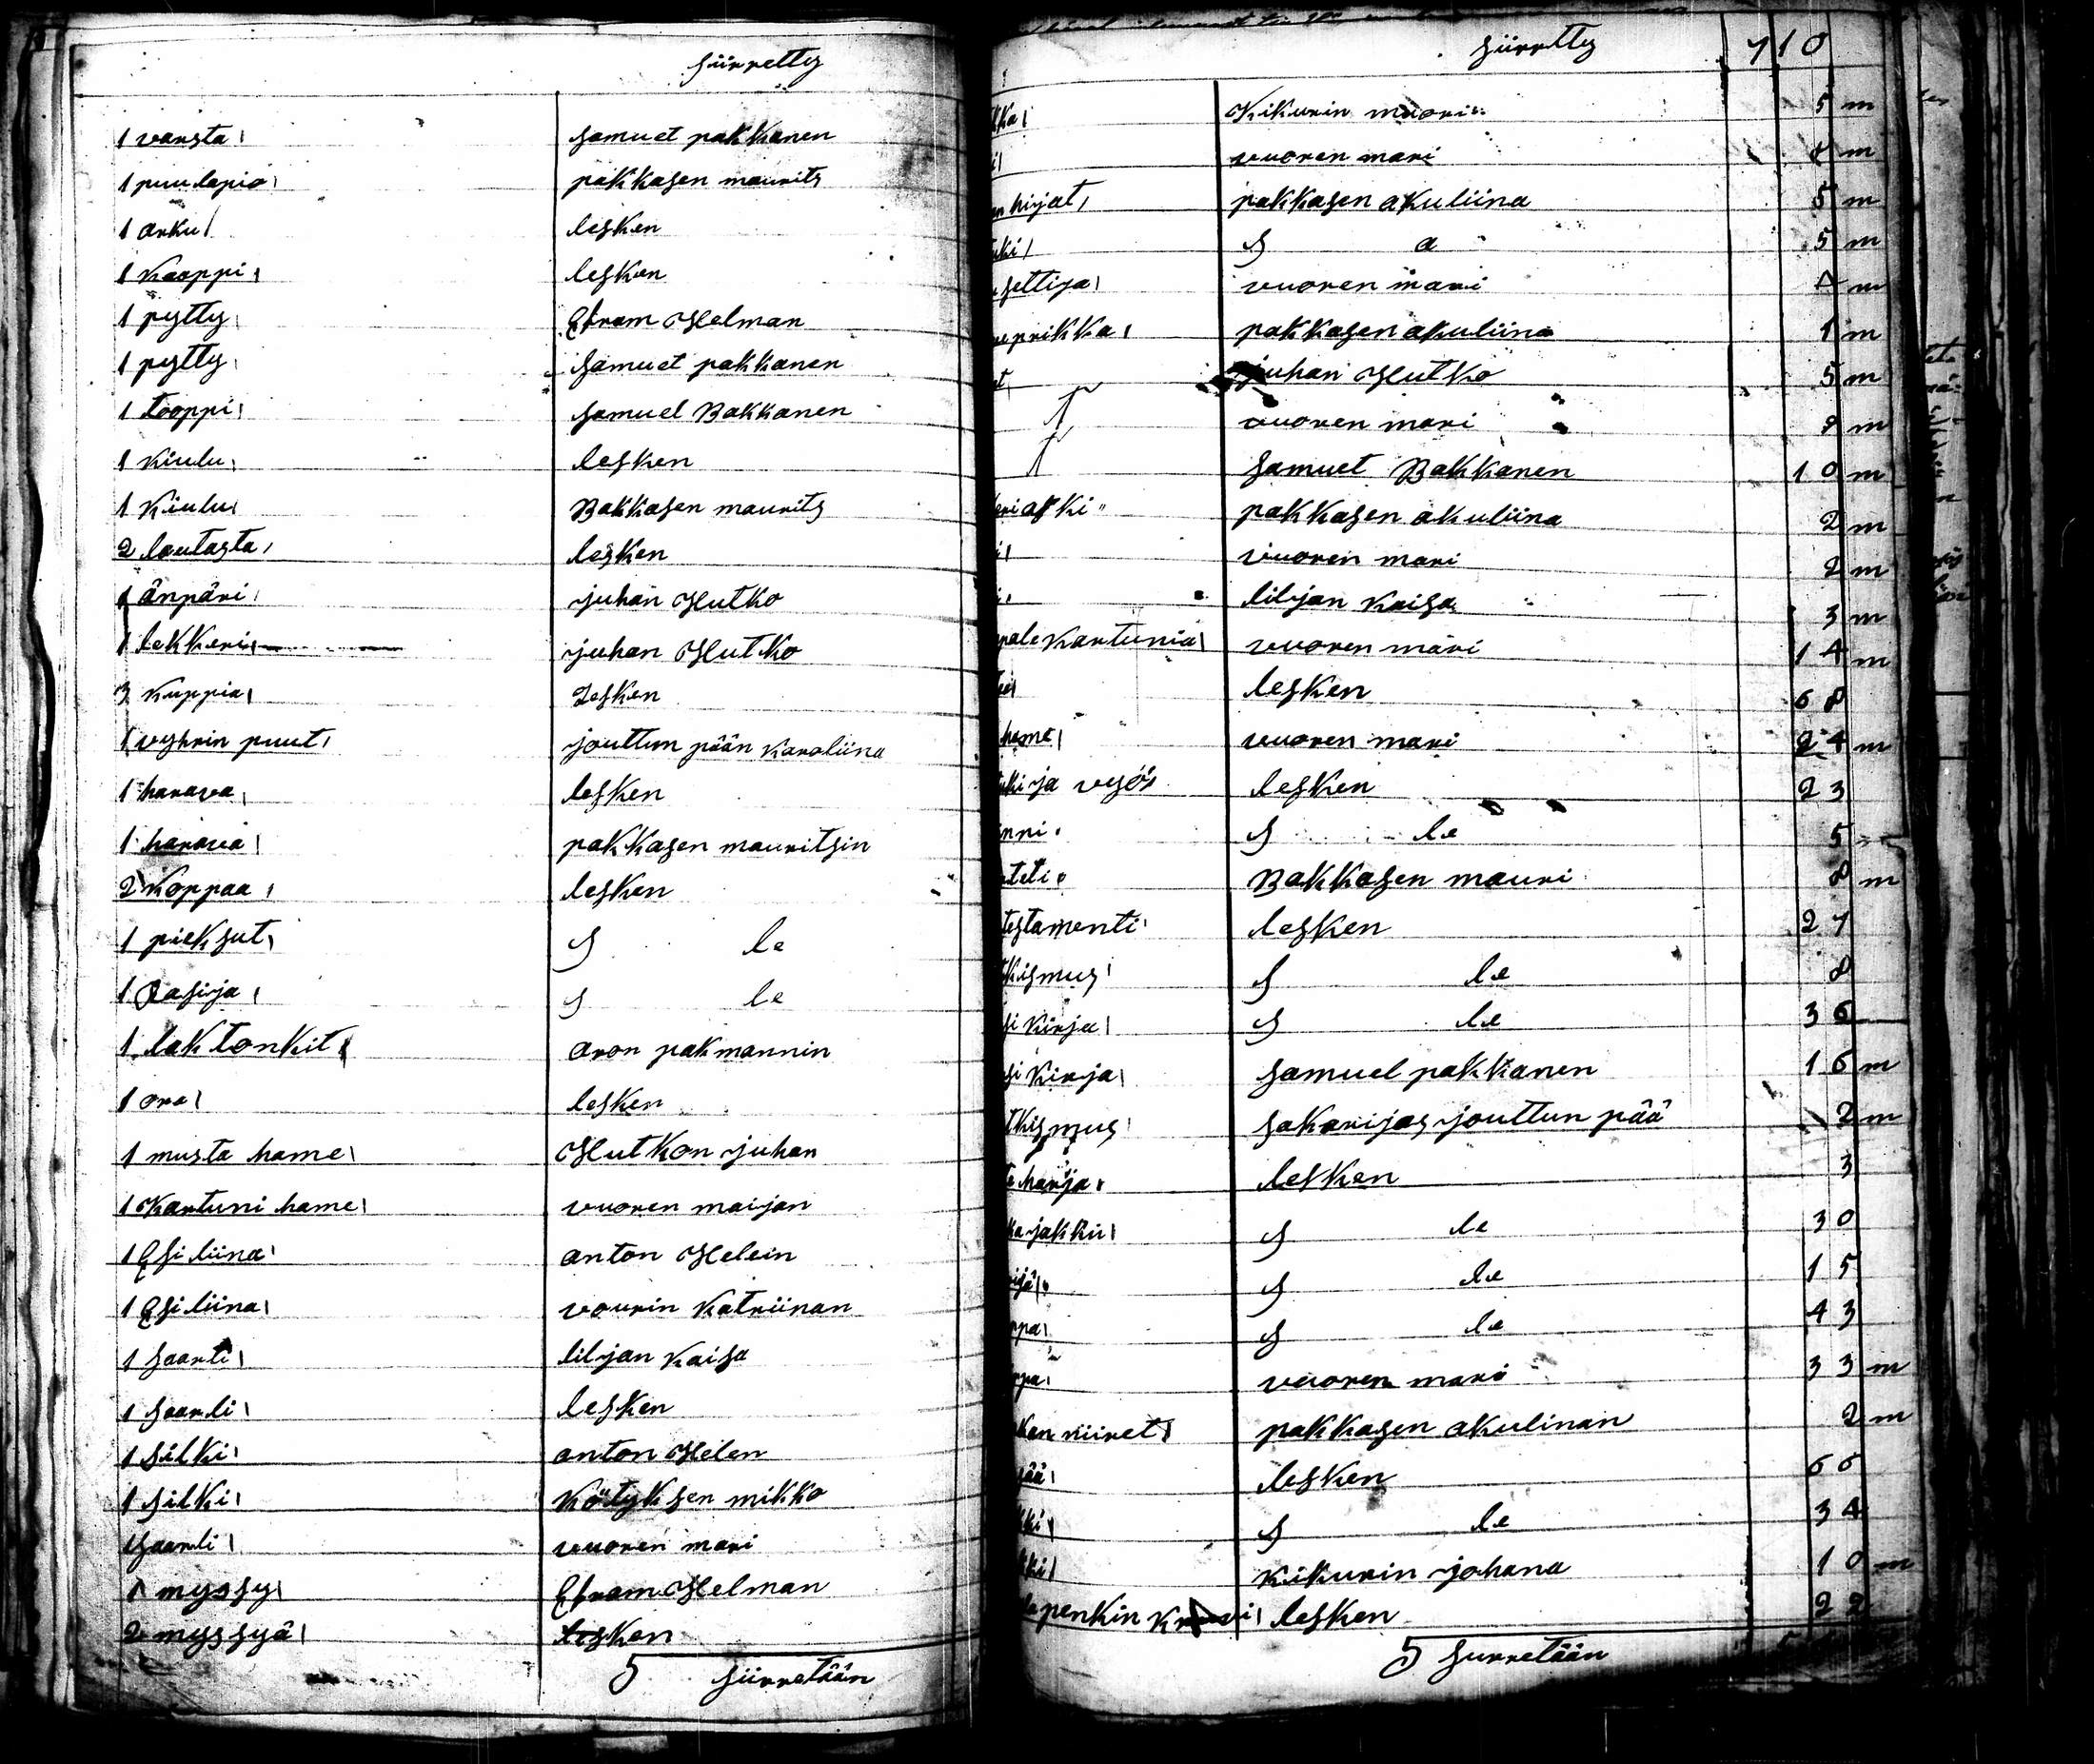 siirretty
1 varsta samuet pakkanen
1 puulapio pakkasen maurits
1 arku lesken
1 kaappi lesken
1 pytty Efram Helman
1 pytty samuet pakkanen
1 tooppi samuel Bakkanen
1 kiulu lesken
1 kiulu Bakkasen maurits
2 lautasta lesken
1 änpäri juhan Hutko
1 lekkeri juhan Hutko
3 kuppia lesken
1 vyhrin puut jouttun pään karoliina
1 harava lesken
1 harava pakkasen mauritsin
2 koppaa lesken
1 pieksut S le
1 rasija S le
1 lak tonkit aron pakmannin
1 ora lesken
1 musta hame Hutkon juhan
1 kartuni hame vuoren maijan
1 Esiliina anton Helein
1 Esiliina vourin katriinan
1 saarli liljan kaisa
1 saarli lesken
1 silki anton Helen
1 silki kötyksen mikko
1 saarli vuoren mari
1 myssy Efram Helman
2 myssyä lesken
5 siirretään
siirretty 710
kka kikurin muori 5 m
vuoren mari m
kirjat pakkasen akuliina 5 m
S a 5 m
settija vuoren mari 4 m
prikka pakkasen akuliina 1 m
juhan Hutko 5 m
vuoren mari m
samuet Bakkanen 10 m
aski pakkasen akuliina 2 m
vuoren mari 2 m
liljan kaisa 3 m
pale kartunia vuoren mari 14 m
lesken 68
hame vuoren mari 24 m
ki ja vyö lesken 23
nni S le 5
teti Bakkasen mauri 8 m
testamenti lesken 27
kismus S le 8
si kirja S le 36
si kirja samuel pakkanen 16 m
tkismus sakarijas jouttun pää 2 m
harja lesken 3
ka jakku S le 30
S le 15
ppa S le 43
ppa vuoren mari 33 m
kan niiret pakkasen akulinan 2 m
sää lesken 66
ki S le 34
ki kikurin johana 10 m
penkin lesken 22
5 siirretään